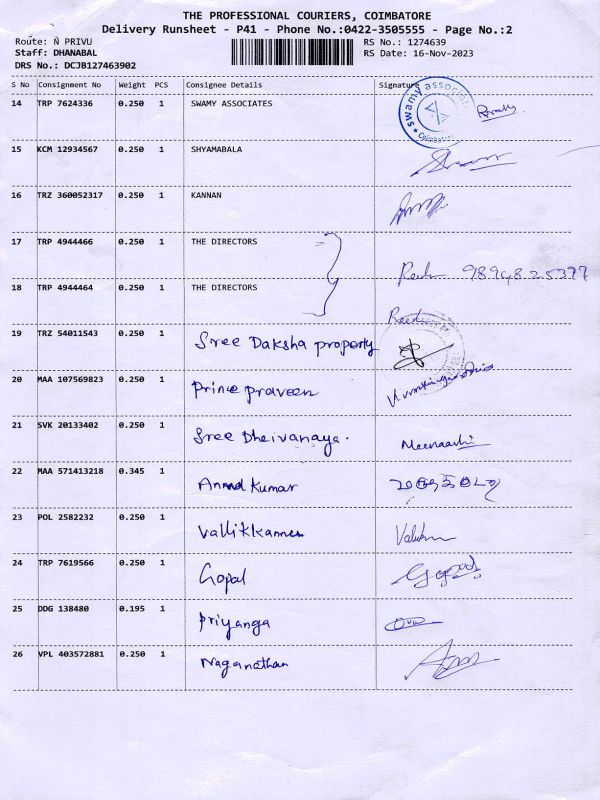 THE PROFESSIONAL COURIERS, COIMBATORE
Delivery Runsheet - P41 - Phone No.:0422-3505555 - Page No.:2
Route: N PRIVU
RS No.: 1274639
Staff: DHANABAL
RS Date: 16-Nov-2023
DRS No.: DCJB127463902
S No Consignment No Weight PCS Consignee Details Signature
14 TRP 7624336 0.250 1 SWAMY ASSOCIATES
swamy associ
Coimbatore
15 KCM 12934567 0.250 1 SHYAMABALA
16 TRZ 360052317 0.250 1 KANNAN
17 TRP 4944466 0.250 1 THE DIRECTORS
18 TRP 4944464 0.250 1 THE DIRECTORS
19 TRZ 54011543 0.250 1 Sree Daksha property
20 MAA 107569823 0.250 1 Prince praveen
21 SVK 20133402 0.250 1 Sree Dheivanaya. Meenaashi
22 MAA 571413218 0.345 1 Anand Kumar
23 POL 2582232 0.250 1 Vallikkannu
24 TRP 7619566 0.250 1 Gopal Gopal
25 DDG 138480 0.195 1 priyanga
26 VPL 403572881 0.250 1 Naganathan